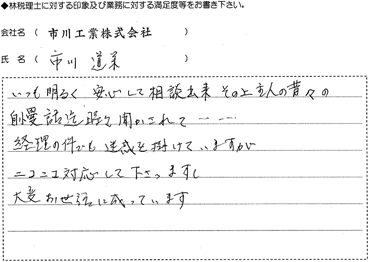 ◆林税理士に対する印象及び業務に対する満足度等をお書き下さい。
会社名 ( 市川工業株式会社 )
氏 名 ( 市川 道子 )
いつも明るく 安心して相談出来 その上主人の昔々の
自慢話迄時々聞かされて ー ー ー
経理の件でも 迷惑を掛けていますが
ニコニコ対応して下さいますし
大変お世話に成っています